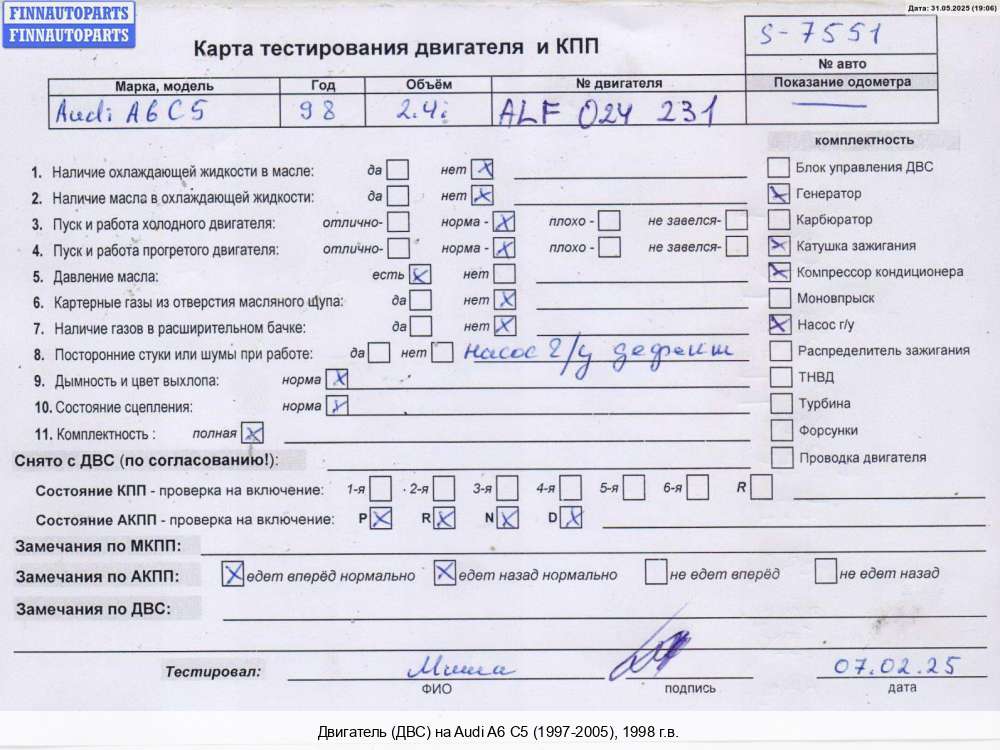 FINNAUTOPARTS
FINNAUTOPARTS
Дата: 31.05.2025 (19:06)
Карта тестирования двигателя и КПП
S-7551
№ авто
Марка, модель Год Объём № двигателя Показание одометра
Audi A6 C5 98 2.4i ALF 024 231
комплектность
1. Наличие охлаждающей жидкости в масле: да нет
2. Наличие масла в охлаждающей жидкости: да нет
3. Пуск и работа холодного двигателя: отлично- норма - плохо - не завелся-
4. Пуск и работа прогретого двигателя: отлично- норма - плохо - не завелся-
5. Давление масла: есть нет
6. Картерные газы из отверстия масляного щупа: да нет
7. Наличие газов в расширительном бачке: да нет
8. Посторонние стуки или шумы при работе: да нет насос г/у дефект
9. Дымность и цвет выхлопа: норма
10. Состояние сцепления: норма
11. Комплектность : полная
Блок управления ДВС
Генератор
Карбюратор
Катушка зажигания
Компрессор кондиционера
Моновпрыск
Насос г/у
Распределитель зажигания
ТНВД
Турбина
Форсунки
Проводка двигателя
Снято с ДВС (по согласованию!):
Состояние КПП - проверка на включение: 1-я 2-я 3-я 4-я 5-я 6-я R
Состояние АКПП - проверка на включение: P R N D
Замечания по МКПП:
Замечания по АКПП: едет вперёд нормально едет назад нормально не едет вперёд не едет назад
Замечания по ДВС:
Тестировал: Миша 07.02.25
ФИО подпись дата
Двигатель (ДВС) на Audi A6 C5 (1997-2005), 1998 г.в.